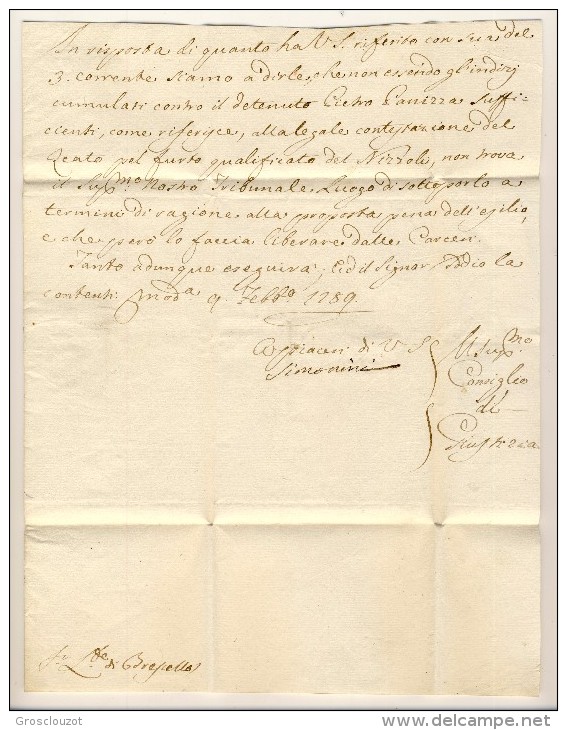 In risposta di quanto ha V S. riferito con sua del
3. corrente siamo a dirle, che non essendo gl'indizj
cumulati contro il detenuto Pietro Panizza suffi=
cienti, come riferisce, alla legale contestazione del
Reato pel furto qualificato del Nizzoli, non trova
il Sup.mo Nostro Tribunale Luogo di sottoporlo a
termini di ragione alla proposta pena dell'esilio,
e che però lo faccia liberare dalle Carceri.
Tanto adunque eseguirà, ed il Signor Iddio la
contenti. Mod.a 9. Febb.o 1789.
A piaceri di V S
Simonini
Il Sup.mo
Consiglio
di
Giustizia
di Brescello
Grosclouzot
www.delcampe.net